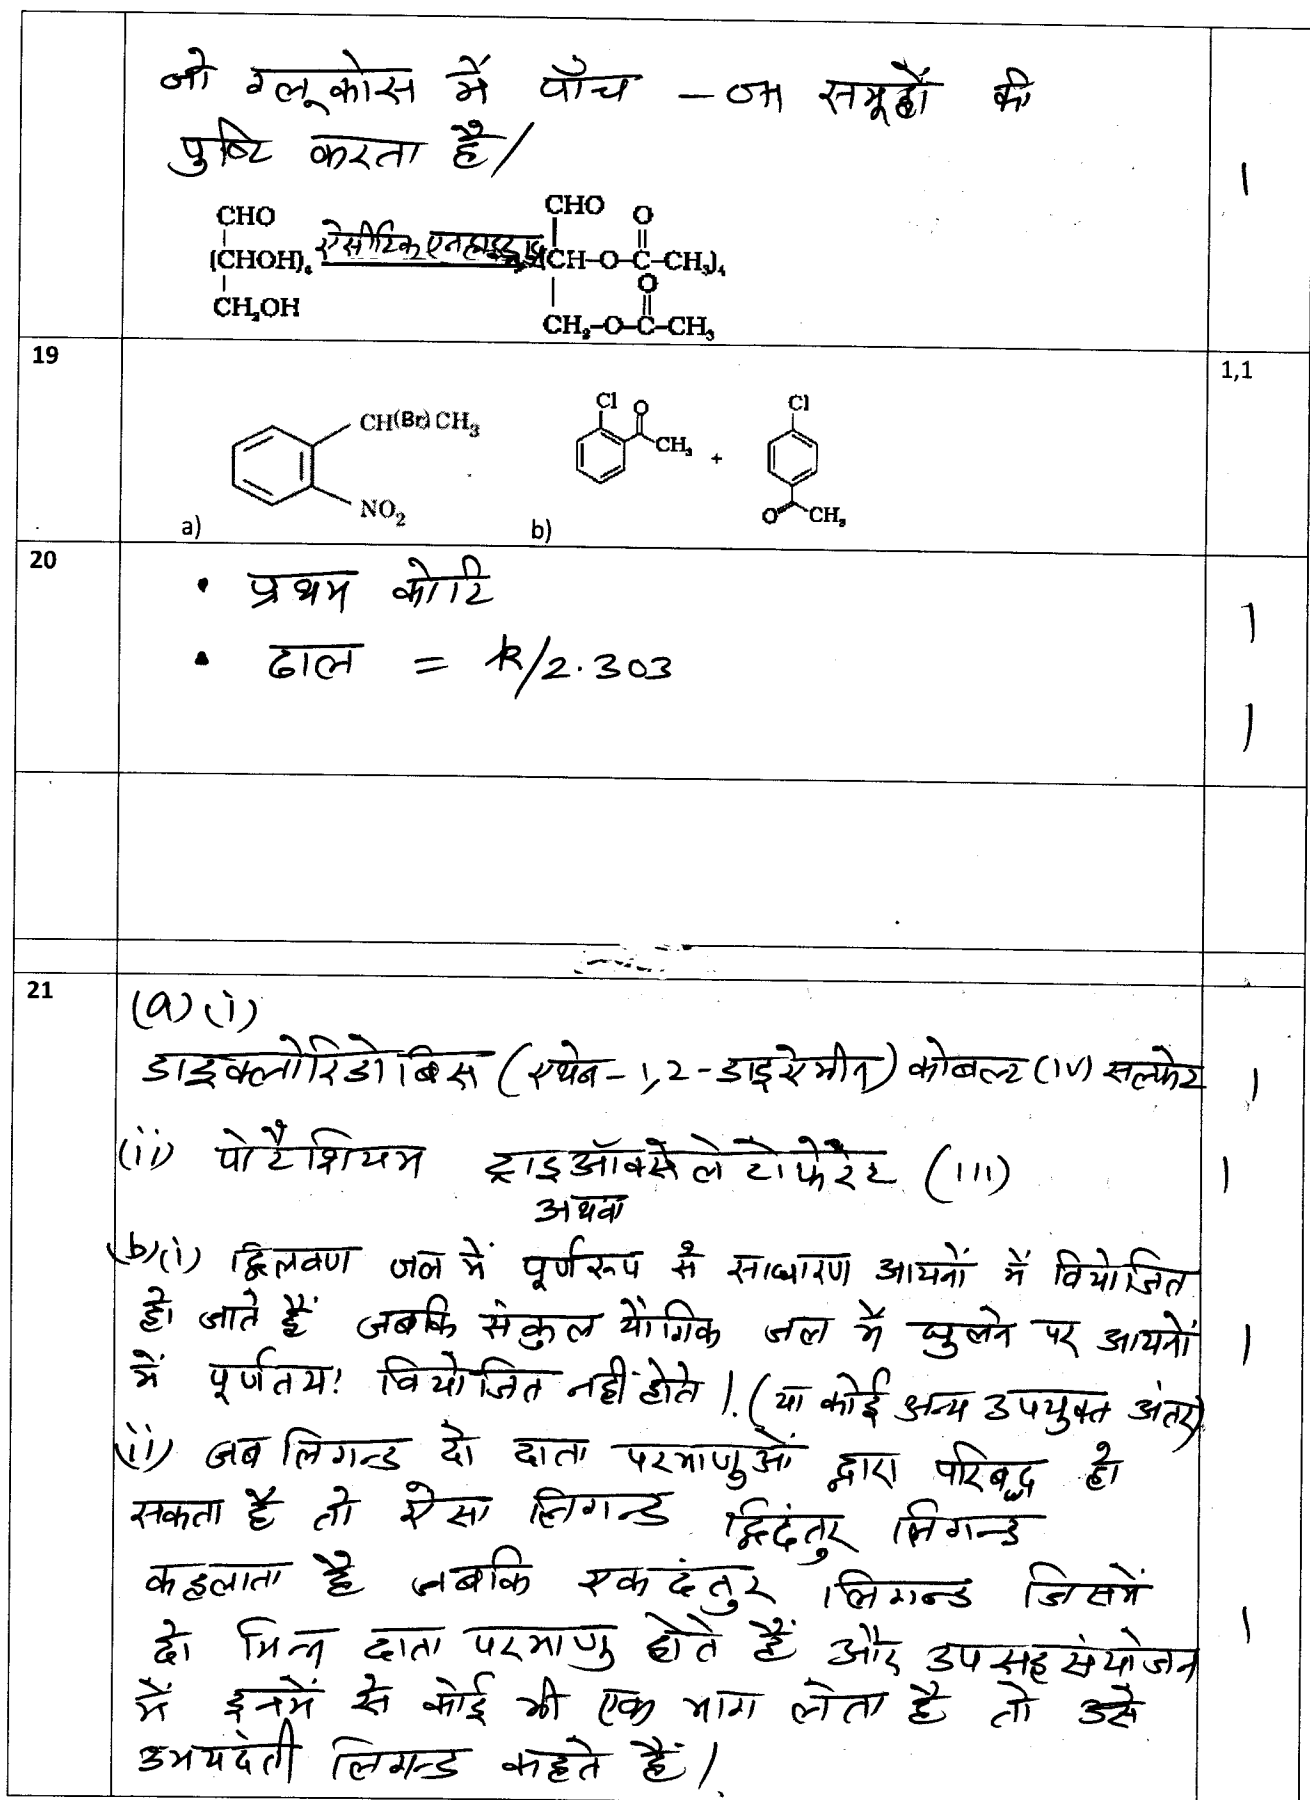 जो ग्लूकोस में पाँच -OH समूहों की
पुष्टि करता है/
1
CHO
(CHOH)₄
CH₂OH
ऐसीटिक एनहाइड्राइड
CHO O
(CH-O-C-CH₃)₄
O
CH₂-O-C-CH₃
19
1,1
CH(Br)CH₃
NO₂
a)
Cl O
CH₃
+
Cl
O CH₃
b)
20
• प्रथम कोटि
1
• ढाल = k/2.303
1
21
(a) (i)
डाइक्लोरिडोबिस (एथेन-1,2-डाइऐमीन) कोबल्ट (IV) सल्फेट
1
(ii) पोटैशियम ट्राइऑक्सेलेटोफेरेट (III)
1
अथवा
b)(i) द्विलवण जल में पूर्णरूप से साधारण आयनों में वियोजित
हो जाते हैं जबकि संकुल यौगिक जल में घुलने पर आयनों
1
में पूर्णतया: वियोजित नहीं होते।. (या कोई अन्य उपयुक्त अंतर)
(ii) जब लिगन्ड दो दाता परमाणुओं द्वारा परिबद्ध हो
सकता है तो ऐसा लिगन्ड द्विदंतुर लिगन्ड
कहलाता है जबकि एकदंतुर लिगन्ड जिसमें
1
दो भिन्न दाता परमाणु होते हैं और उपसहसंयोजन
में इनमें से कोई भी एक भाग लेता है तो उसे
उभयदंती लिगन्ड कहते हैं।